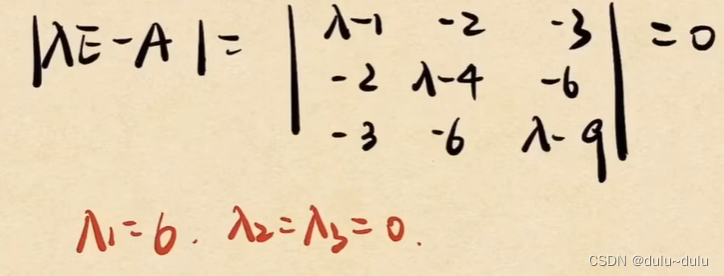 |λE-A| = | λ-1 -2 -3 | = 0
-2 λ-4 -6
-3 -6 λ-9
λ₁=6. λ₂=λ₃=0.
CSDN @dulu~dulu